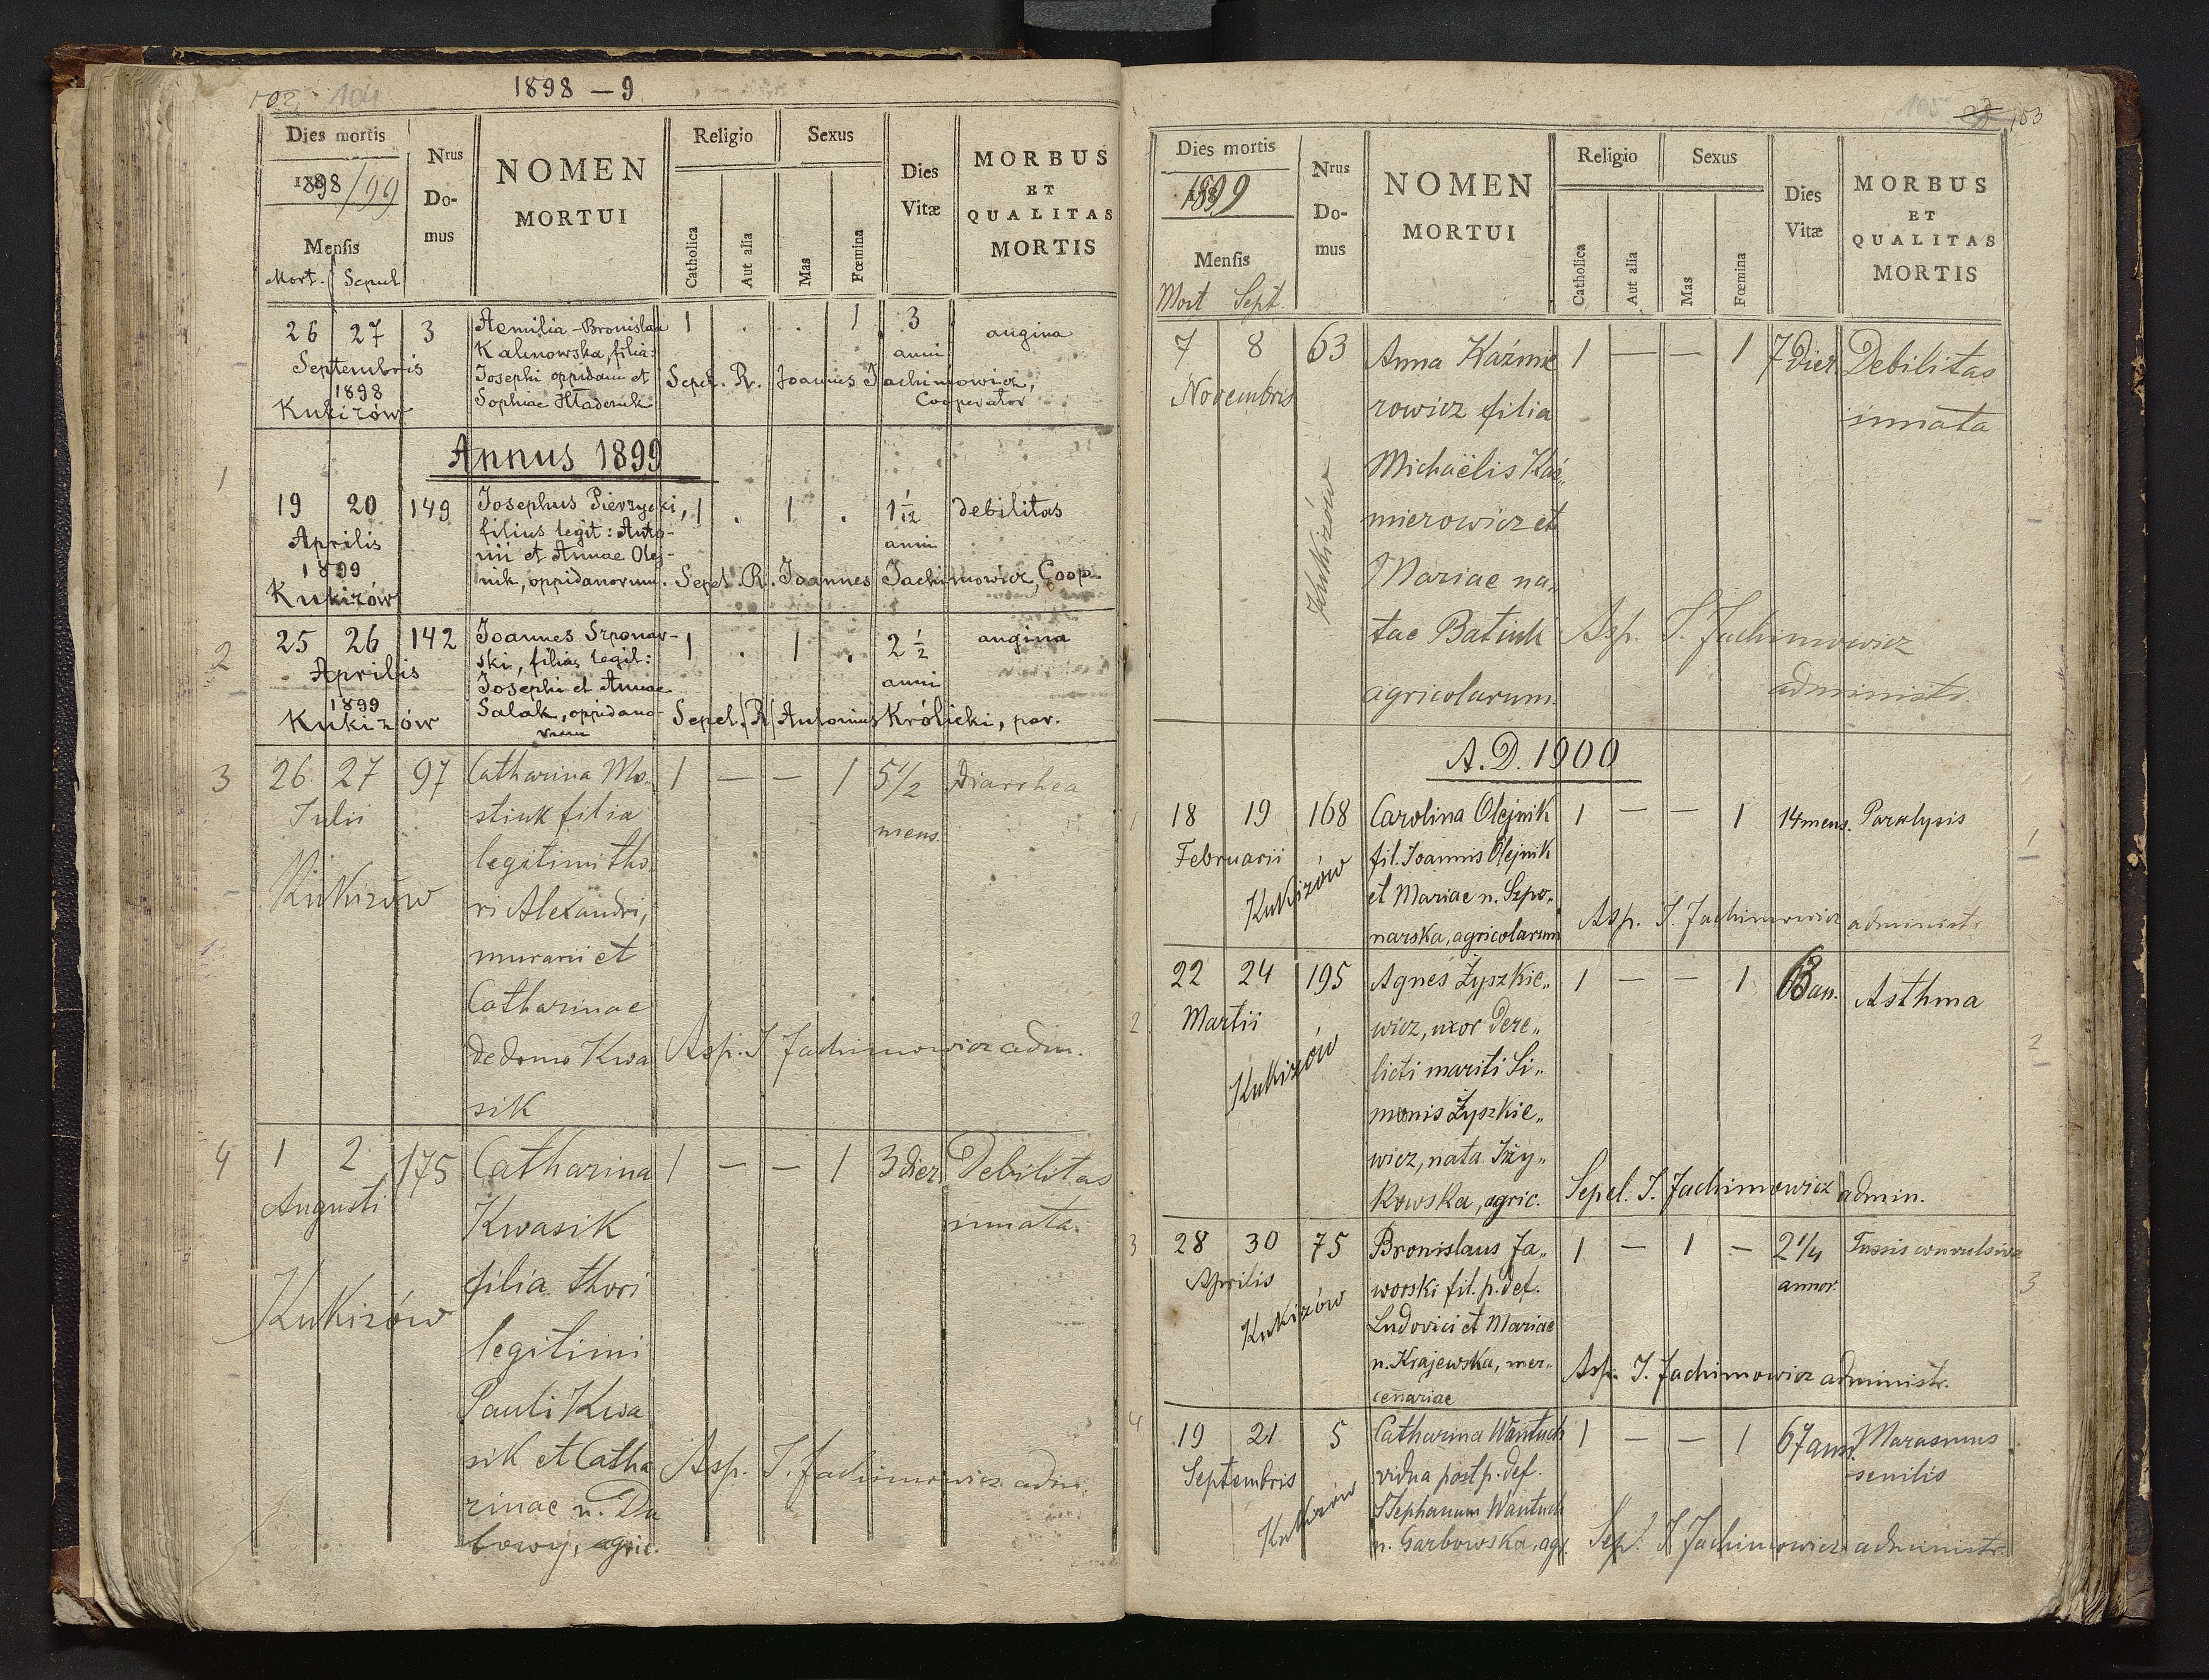 102 104
1898 – 9
Dies mortis
1898/99
Menſis
Mort. Sepul
Nrus
Do-
mus
NOMEN
MORTUI
Religio
Catholica
Aut alia
Sexus
Mas
Fœmina
Dies
Vitæ
MORBUS
ET
QUALITAS
MORTIS
26 27 3 Aemilia-Bronislau 1 . . 1 3 angina
Septembris Kalinowska, filia: anni
1898 Josephi oppidani et Sepel. R. Joannes Jachimowicz,
Kukizów Sophiae Hladeruk Cooperator
Annus 1899
1
19 20 149 Josephus Pierzycki, 1 . 1 . 1 1/12 debilitas
Aprilis filius legit: Anto- anni
1899 nii et Annae Olej-
Kukizów nik, oppidanorum. Sepel. R. Joannes Jachimowicz, Coop.
2 25 26 142 Joannes Szponar- 1 . 1 . 2 1/2 angina
Aprilis ski, filius legit: anni
1899 Josephi et Annae
Kukizów Salak, oppidano- Sepel. R. Antonius Królicki, par.
rum
3 26 27 97 Catharina Mo- 1 — — 1 5 1/2 Diarrhea
Julii stiuk filia mens.
legitimi tho-
Kukizów ri Alexandri,
murarii et
Catharinae
de domo Kwa Asp. J Jachimowicz adm.
sik
4 1 2 175 Catharina 1 — — 1 3 dier. Debilitas
Augusti Kwasik innata.
filia thori
Kukizów legitimi
Pauli Kwa
sik et Catha Asp. J. Jachimowicz adm.
rinae n. Du
bowy, agric.
105 153
Dies mortis
1899
Menſis
Mort Sept
Nrus
Do-
mus
NOMEN
MORTUI
Religio
Catholica
Aut alia
Sexus
Mas
Fœmina
Dies
Vitæ
MORBUS
ET
QUALITAS
MORTIS
7 8 63 Anna Kaźmie 1 — — 1 7 dier. Debilitas
Novembris rowicz filia innata
Kukizów Michaëlis Kaź-
mierowicz et
Mariae na-
tae Batiuk Asp. J. Jachimowicz
agricolarum. administr.
A.D. 1900
1 18 19 168 Carolina Olejnik 1 — — 1 14 mens. Paralysis
Februarii fil. Joannis Olejnik 1
Kukizów et Mariae n. Szpo„
narska, agricolarum Asp. J. Jachimowicz administr
22 24 195 Agnes Żyszkie„ 1 — — 1 63 an. Asthma
2 Martii wicz, uxor dere„ 2
Kukizów licti mariti Si„
monis Żyszkie„
wicz, nata Iży„
kowska, agric. Sepel. J. Jachimowicz admin.
3 28 30 75 Bronislaus Ja„ 1 — 1 — 2 1/4 Tussis convulsiva
Aprilis worski fil. p. def. annor. 3
Kukizów Ludovici et Mariae
n. Krajewska, mer„ Asp. J. Jachimowicz administr.
cenariae
4 19 21 5 Catharina Wantuch 1 — — 1 67 ann. Marasmus
Septembris vidua post p. def. senilis
Kukizów Stephanum Wantuch
n. Garbowska, agr. Sep. J Jachimowicz administr.